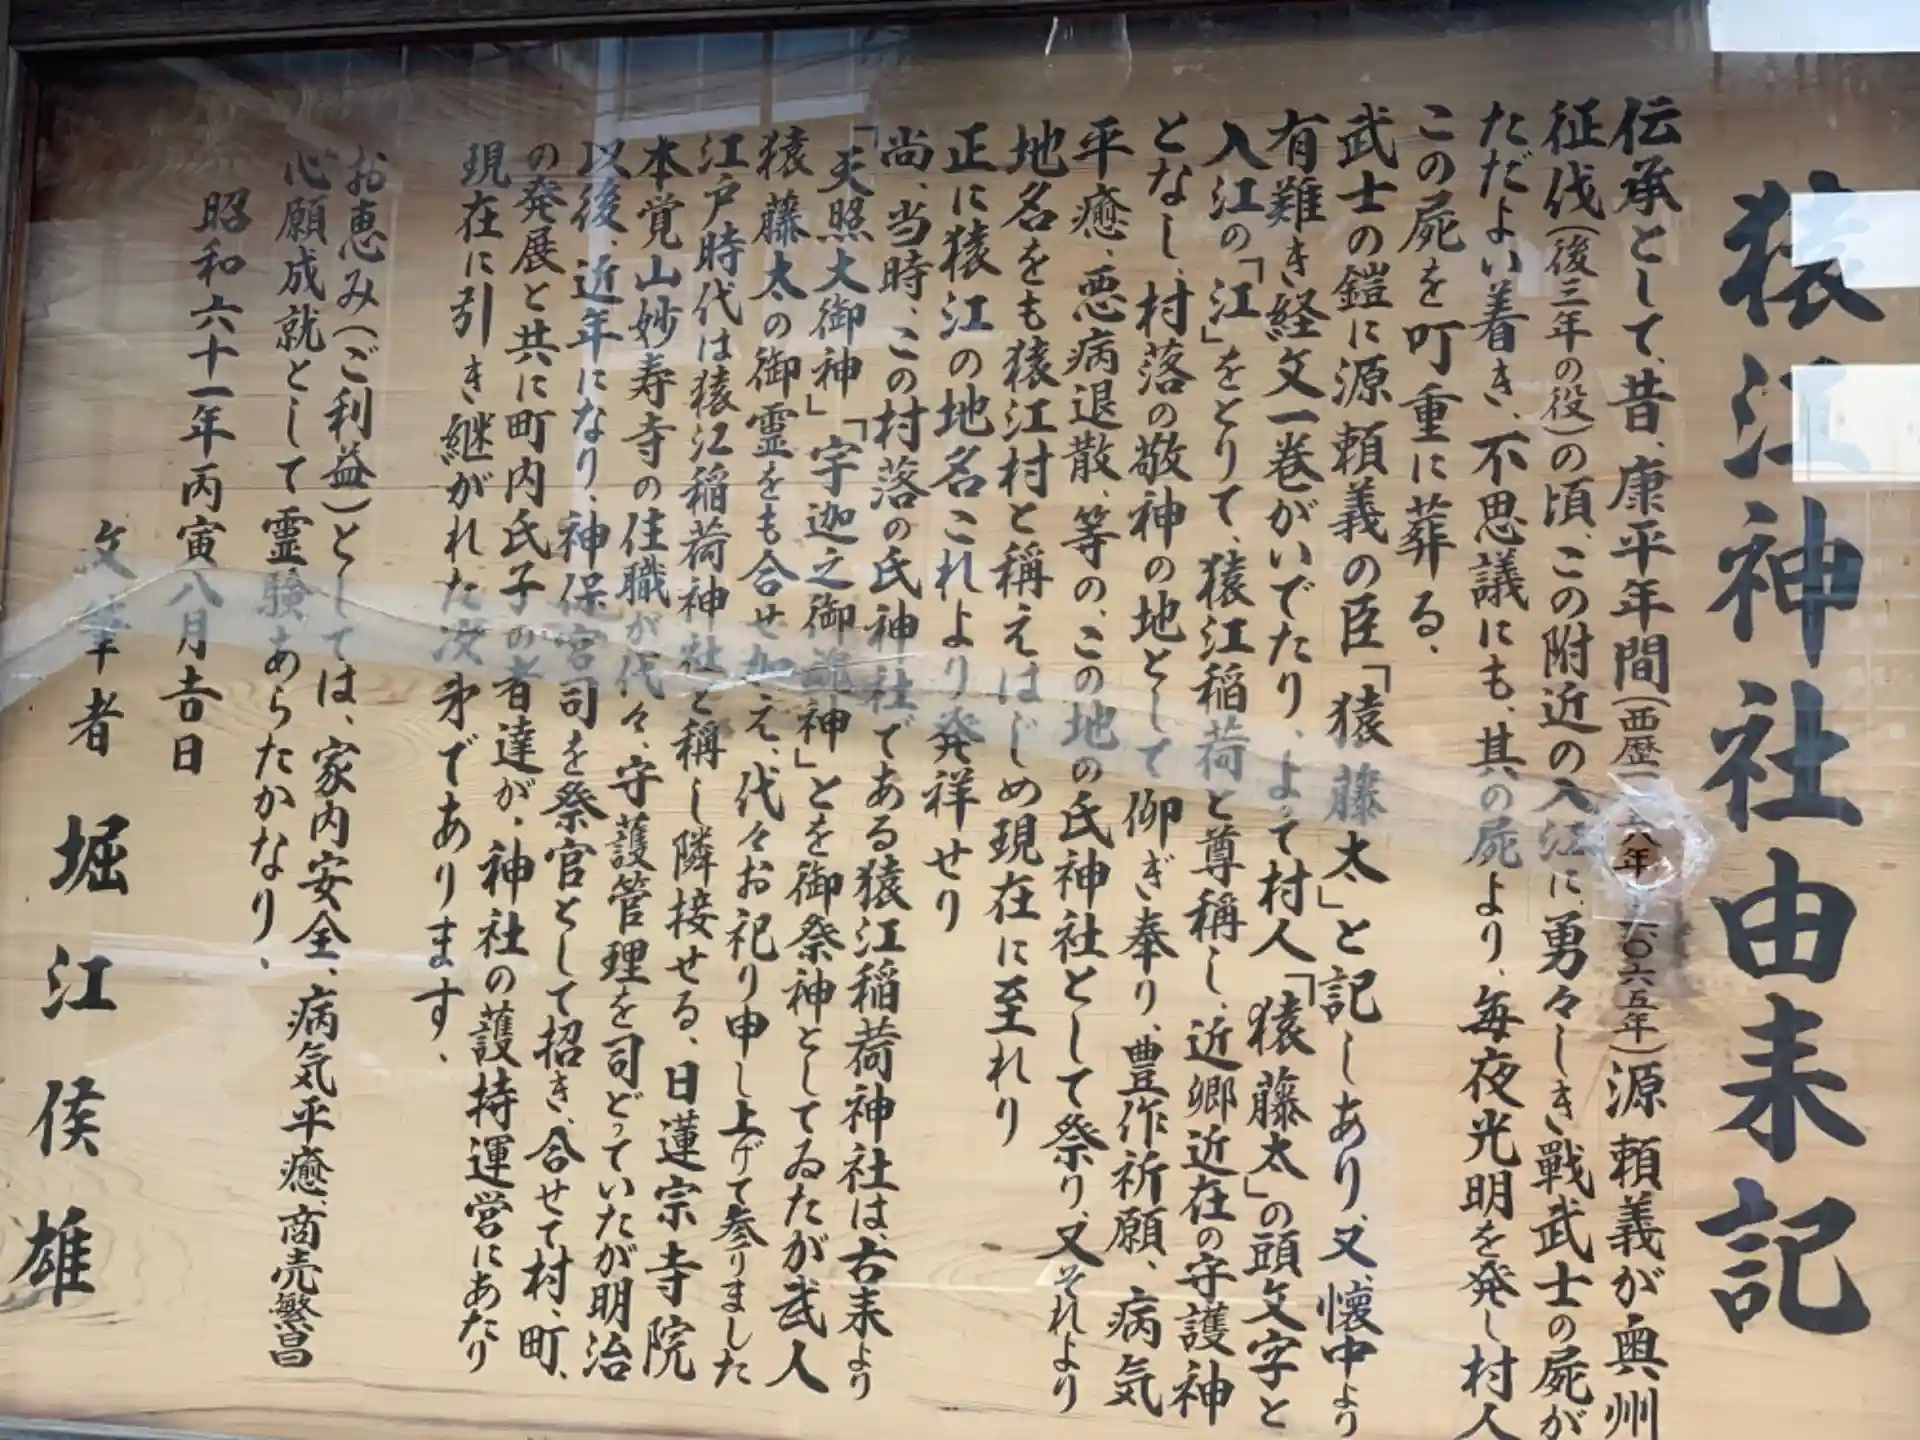 猿江神社由来記
伝承として、昔、康平年間(西歴一 五八年 一〇六五年)源頼義が奥州
征伐(後三年の役)の頃、この附近の入江に、勇々しき戦武士の屍が
ただよい着き、不思議にも、其の屍より、毎夜光明を発し村人
この屍を叮重に葬る、
武士の鎧に源頼義の臣「猿藤太」と記しあり、又、懐中より
有難き経文一巻がいでたり、よって村人「猿藤太」の頭文字と
入江の「江」をとりて、猿江稲荷と尊稱し、近郷近在の守護神
となし、村落の敬神の地として仰ぎ奉り、豊作祈願、病気
平癒、悪病退散、等の、この地の氏神社として祭り、又それより
地名をも猿江村と稱えはじめ現在に至れり
正に猿江の地名これより発祥せり
尚、当時、この村落の氏神社である猿江稲荷神社は、古来より
「天照大御神」「宇迦之御魂神」とを御祭神としてゐたが武人
猿藤太の御霊をも合せ加え、代々お祀り申し上げて参りました
江戸時代は猿江稲荷神社と稱し隣接せる、日蓮宗寺院
本覚山妙寿寺の住職が代々、守護管理を司どっていたが明治
以後、近年になり、神保宮司を祭官として招き、合せて村、町、
の発展と共に町内氏子の者達が、神社の護持運営にあたり
現在に引き継がれた次第であります、
お恵み(ご利益)としては、家内安全、病気平癒、商売繁昌
心願成就として霊験あらたかなり、
昭和六十一年丙寅八月吉日
文筆者 堀江侯雄